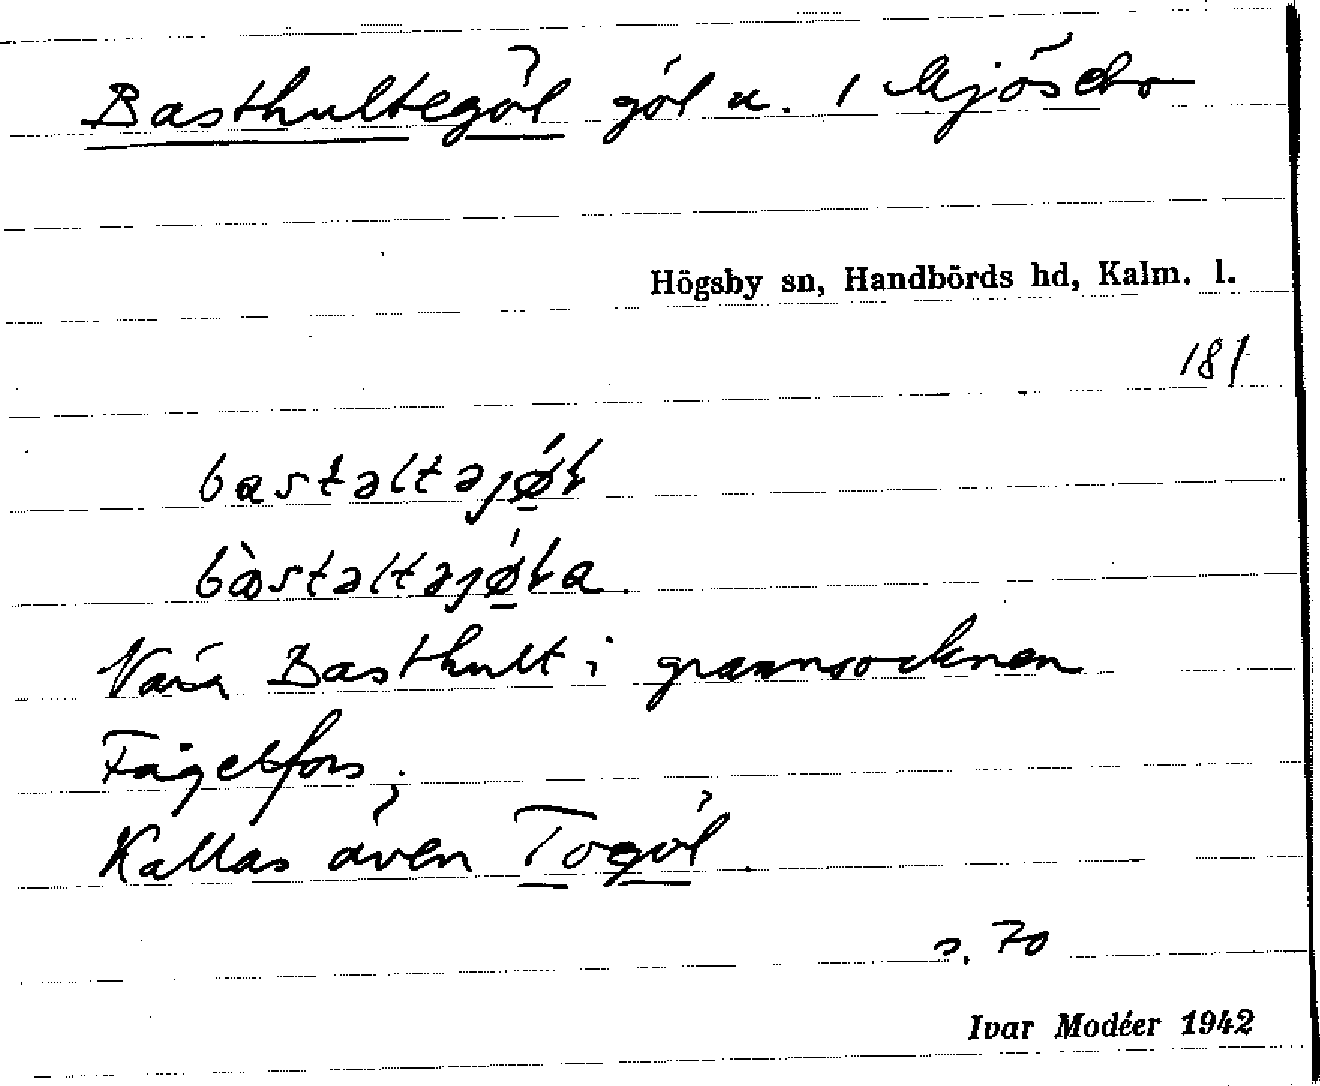 Basthultegöl göl u. 1 Mjösebo
Högsby sn, Handbörds hd, Kalm. l.
181
bastəltəjǿ̱ɫ
bàstəltəjǿ̱ɫa.
Nära Basthult i grannsocknen
Fågelfors.
Kallas även Togöl.
s. 70
Ivar Modéer 1942